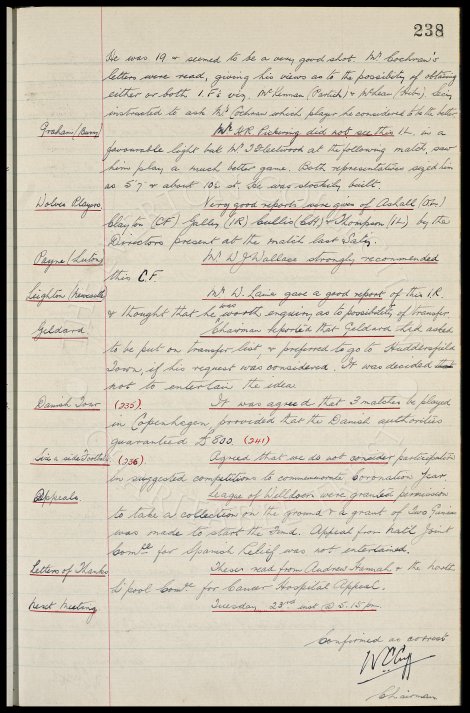 238
He was 19 & seemed to be a very good shot. Mr Cochran's
letters were read, giving his views as to the possibility of obtaining
either or both I.Fs viz. McLennan (Partick) & McLean (Hibs). Secy
instructed to ask Mr Cochran which player he considered to be the better.
Graham (Barry) Mr H.R. Pickering did not see this I.L. in a
favourable light but Mr J Fleetwood at the following match, saw
him play a much better game. Both representatives sized him
as 5'7" & about 10½ st. He was stockily built.
Wolves Players Very good reports were given of Ashall
Clayton (CF) Galley (IR) Cullis (CH) & Thompson (IL) by the
Directors present at the match last Satdy.
Payne (Luton) Mr W.J. Wallace strongly recommended
this C.F.
Leighton (Newcastle) Mr W. Laine gave a good report of this I.R.
& thought that he was worth enquiry as to possibility of transfer.
Geldard Chairman reported that Geldard had asked
to be put on transfer list, & preferred to go to Huddersfield
Town, if his request was considered. It was decided that
not to entertain the idea
Danish Tour (235). It was agreed that 3 matches be played
in Copenhagen, provided that the Danish authorities
guaranteed £500. (241)
Six a side Football (236). Agreed that we do not consider participation
in suggested competitions to commemorate Coronation Year
Appeals. League of Welldoers were granted permission
to take a collection on the ground & a grant of two Guineas
was made to start the Fund. Appeal from Natl Joint
Comee for Spanish Relief was not entertained.
Letters of Thanks These read from Andrew Hannah & the North
L'pool Comee for Cancer Hospital Appeal.
Next Meeting Tuesday 23rd inst @ 5.15 pm.
Confirmed as correct
W C Cuff
Chairman